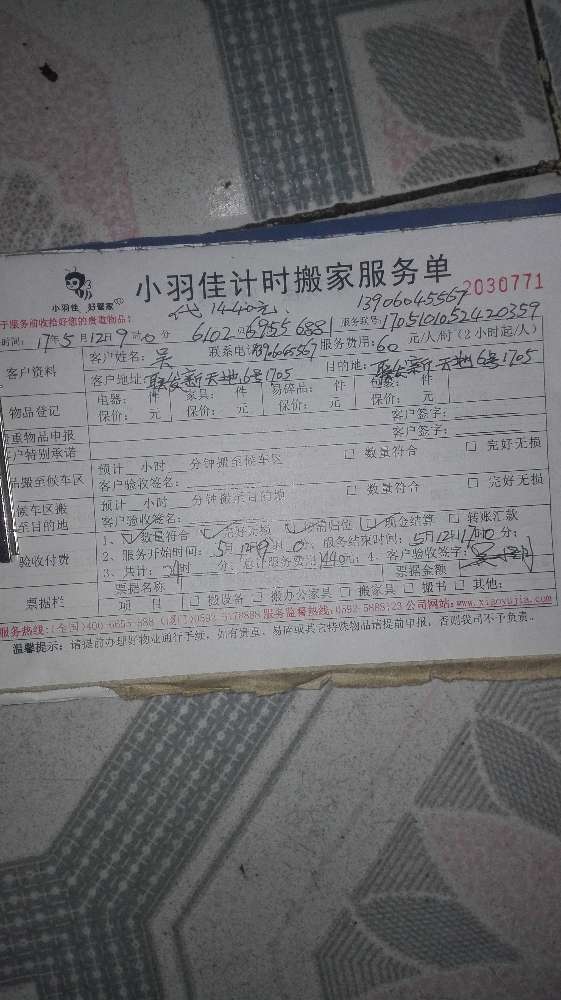 小羽佳 好管家
小羽佳计时搬家服务单
2030771
代 1440元、
13906045567
于服务前收拾好您的贵重物品:
时间: 17年5月12日9时0分 服务账号: 17051010524420359
客户资料
客户姓名: 吴 联系电话 服务费用: 60 元/人/时(2小时起/人)
客户地址: 联发新天地6号1705 目的地: 联发新天地6号1705
物品登记
电器: 件 家具: 件 易碎品: 件 包数: 件
保价: 元 保价: 元 保价: 元 保价: 元
重物品申报 客户签字:
户特别承诺 客户签字:
品搬至候车区
预计 小时 分钟搬至候车区 □ 数量符合 □ 完好无损
客户验收签名:
候车区搬至目的地
预计 小时 分钟搬至目的地 □ 数量符合 □ 完好无损
客户验收签名:
验收付费
1、 数量符合 完好无损 物品归位 现金结算 □ 转账汇款
2、服务开始时间: 5月12日9 0分; 服务结束时间: 5月12日 0分;
3、共计: 24时 分, 总计服务费 1440元; 4、客户验收签字:
票据栏
票据名称 票据金额
项 目 □ 搬设备 □ 搬办公家具 □ 搬家具 □ 搬书 □ 其他:
服务热线:(全国)400-6655-888 服务监督热线:0592-5888123 公司网站:www.xiaoyujia.com
温馨提示: 请提前办理好物业通行手续, 如有贵重、易碎或其它特殊物品请提前申报, 否则我司不予负责。